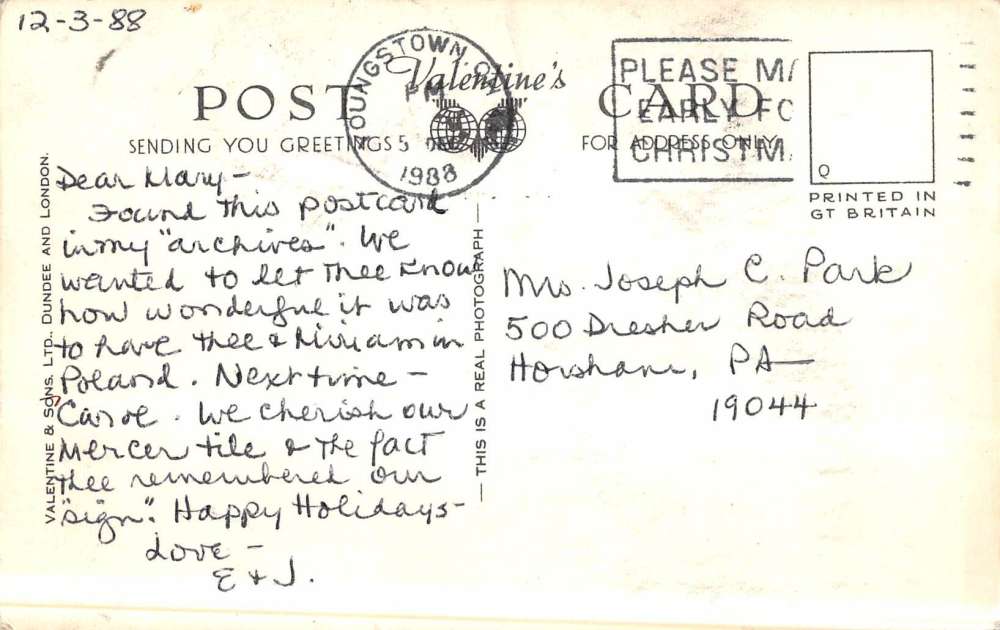 12-3-88
YOUNGSTOWN, O
PM
5 DEC
1988
PLEASE MA
EARLY FO
CHRISTMA
POST CARD
Valentine's
SENDING YOU GREETINGS
FOR ADDRESS ONLY
Q
PRINTED IN
GT BRITAIN
VALENTINE & SONS. LTD. DUNDEE AND LONDON.
— THIS IS A REAL PHOTOGRAPH —
Dear Mary –
Found this postcard
in my "archives". We
wanted to let thee know
how wonderful it was
to have thee & Miriam in
Poland. Next time –
Carol. We cherish our
Mercer tile & the fact
thee remembered our
"sign". Happy Holidays –
Love –
E & J.
Mrs. Joseph C. Park
500 Dresher Road
Horsham, PA
19044